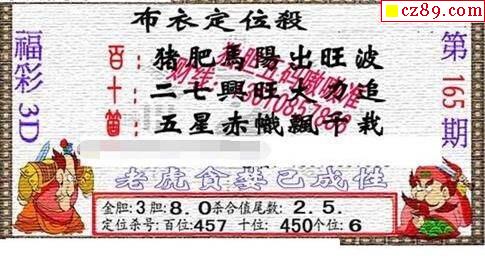 cz89.com
布衣定位殺
福彩3D
第165期
百 猪肥馬陽出旺波
十 二七興旺大力追
個 五星赤幟飄子栽
老虎食
已成性
金胆:3胆:8.0杀合值尾数:2.5.
定位杀号:百位:457 十位:450个位:6